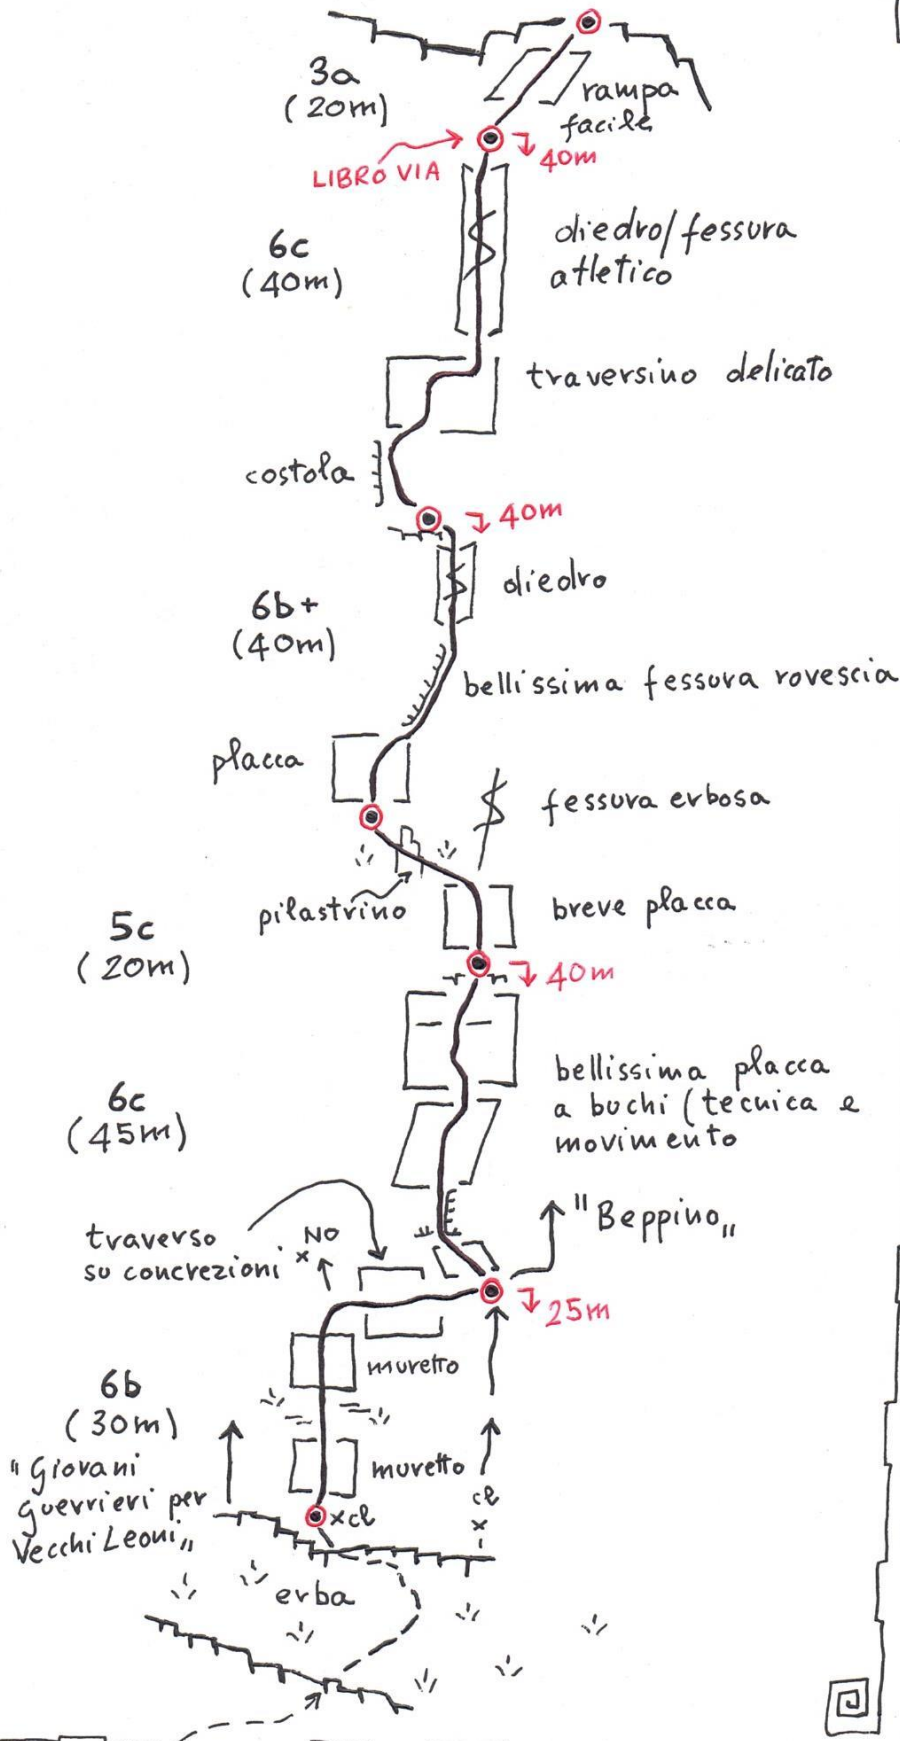 3a
(20m)
rampa
facile
LIBRO VIA
40m
6c
(40m)
diedro/fessura
atletico
traversino delicato
costola
40m
6b+
(40m)
diedro
bellissima fessura rovescia
placca
fessura erbosa
pilastrino
breve placca
5c
(20m)
40m
6c
(45m)
bellissima placca
a buchi (tecnica e
movimento
"Beppino„
traverso
su concrezioni
NO
x
25m
muretto
6b
(30m)
"Giovani
guerrieri per
Vecchi Leoni„
muretto
cl
x
xcl
erba